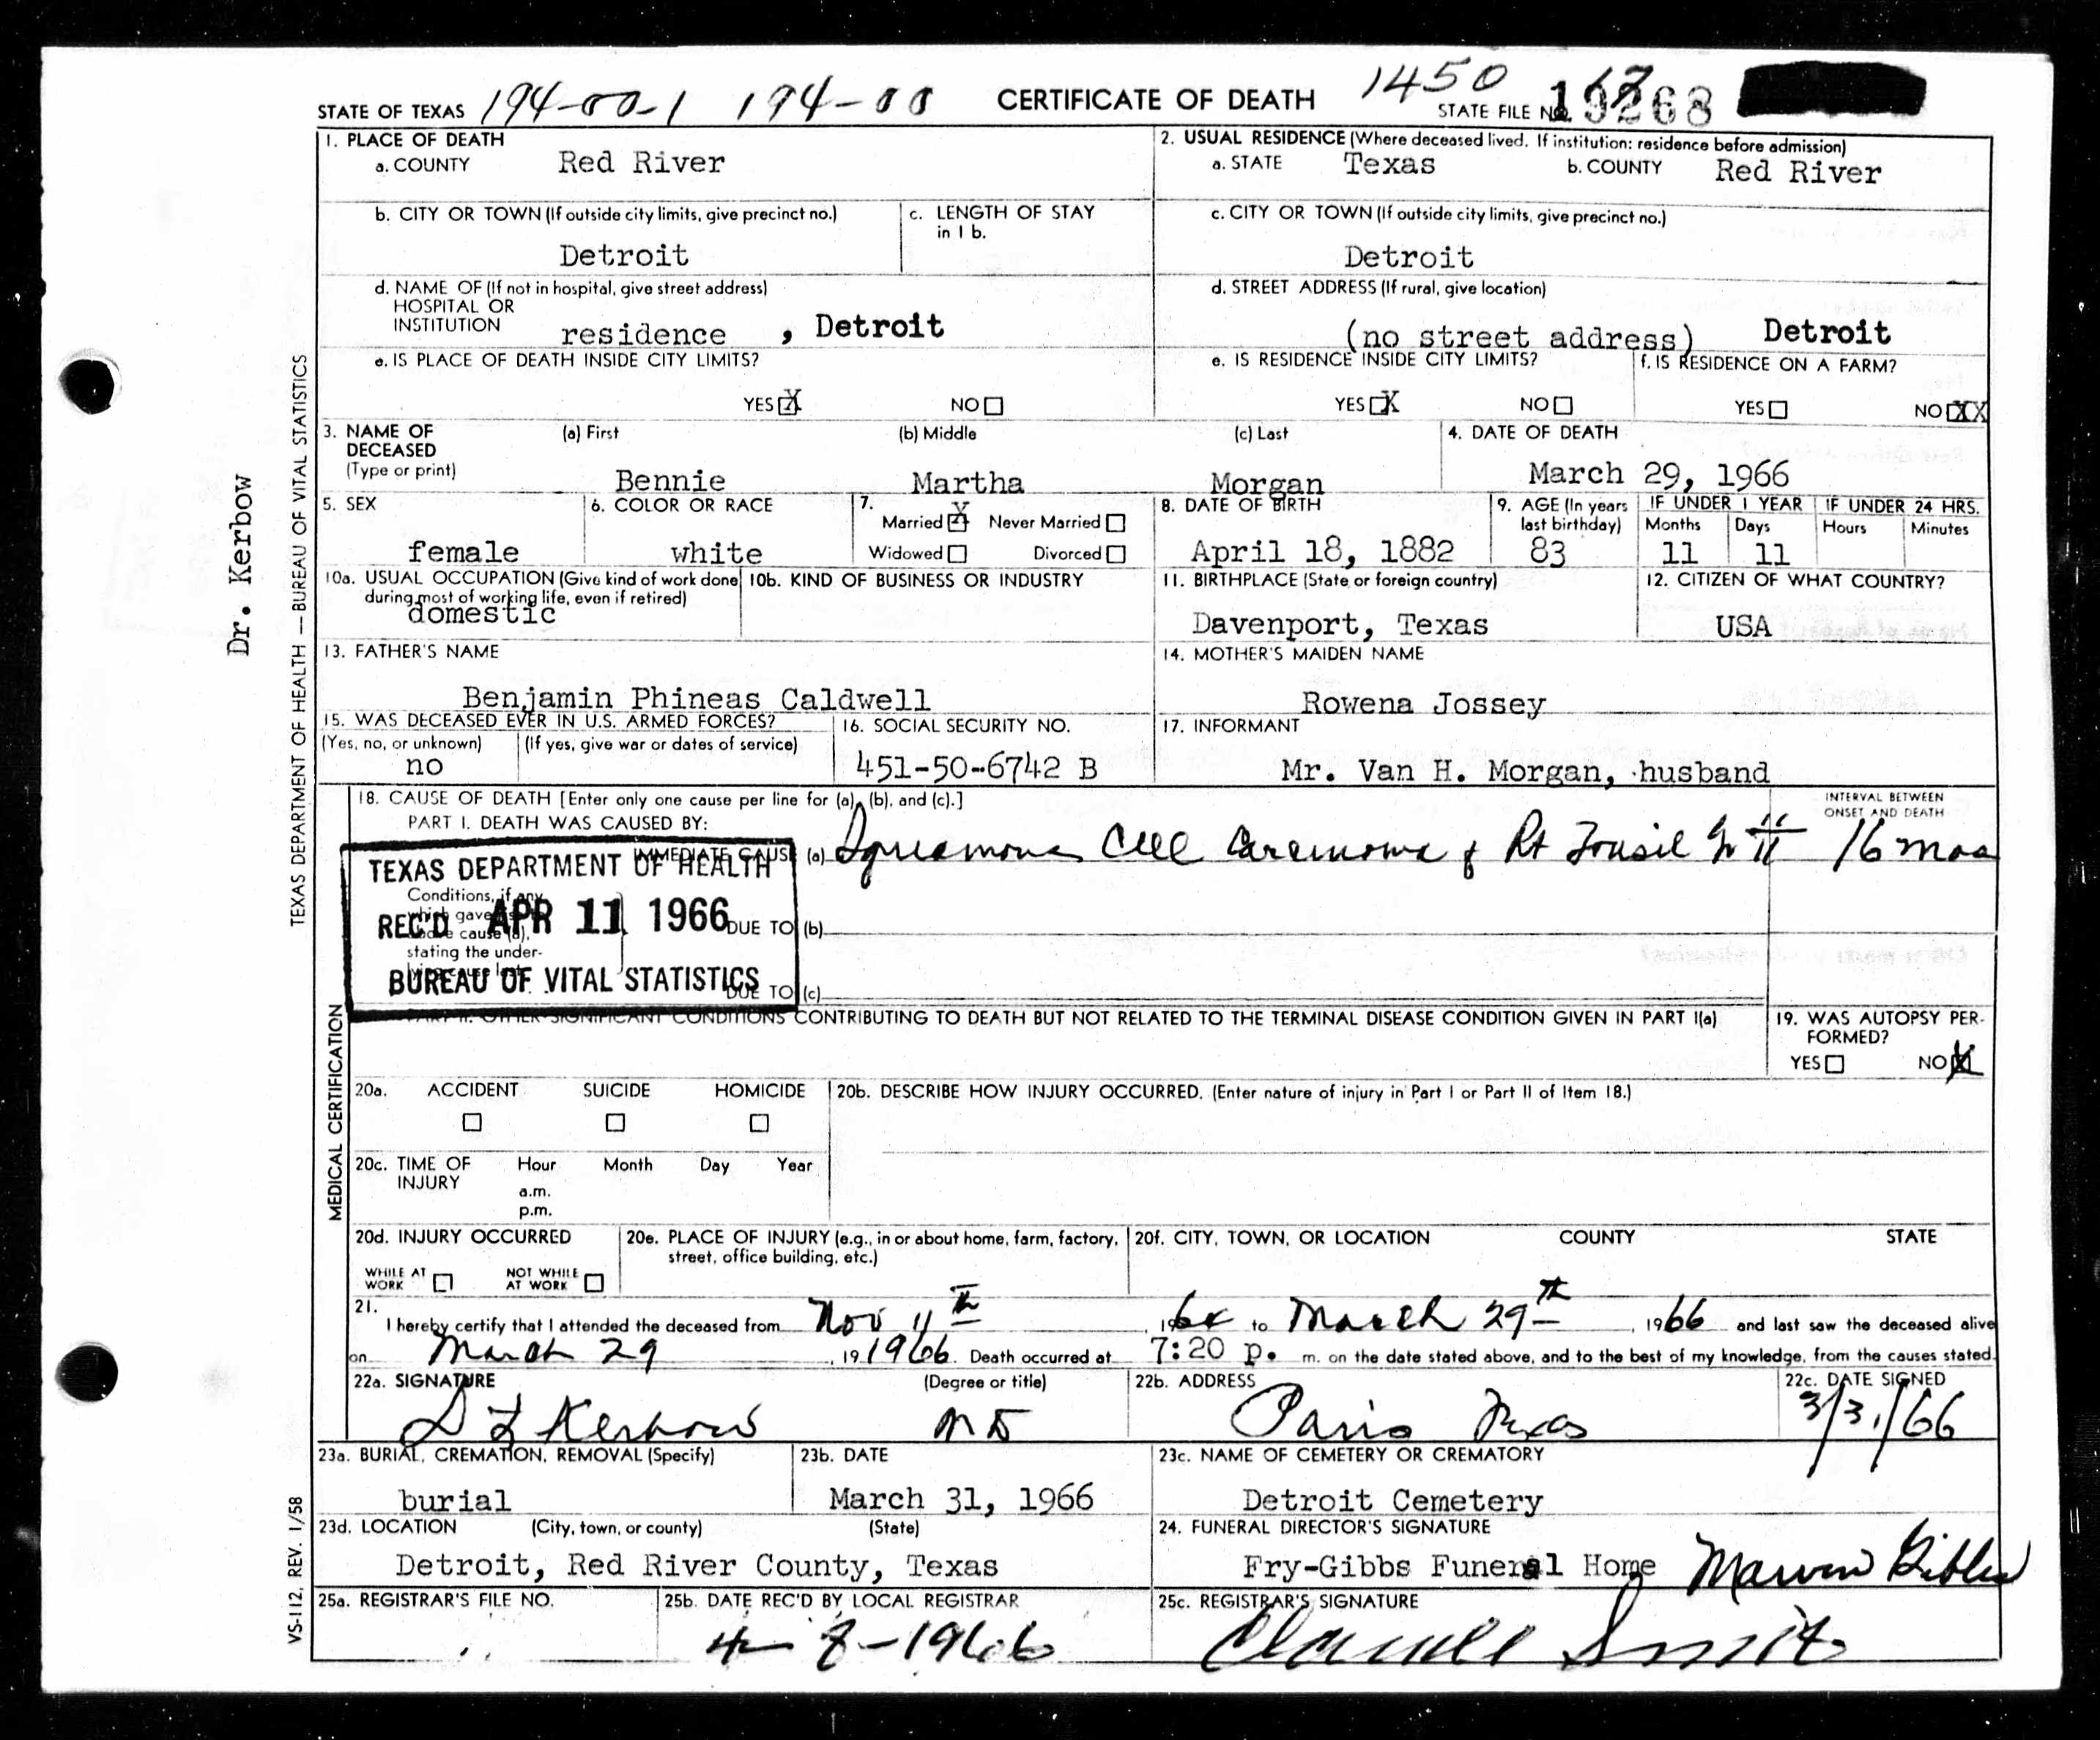 STATE OF TEXAS 194-00-1 194-00 CERTIFICATE OF DEATH 1450 STATE FILE NO. 19268
1. PLACE OF DEATH
a. COUNTY Red River
2. USUAL RESIDENCE (Where deceased lived. If institution: residence before admission)
a. STATE Texas b. COUNTY Red River
b. CITY OR TOWN (If outside city limits, give precinct no.)
Detroit
c. LENGTH OF STAY
in 1 b.
c. CITY OR TOWN (If outside city limits, give precinct no.)
Detroit
d. NAME OF (If not in hospital, give street address)
HOSPITAL OR
INSTITUTION residence , Detroit
d. STREET ADDRESS (If rural, give location)
(no street address) Detroit
e. IS PLACE OF DEATH INSIDE CITY LIMITS?
YES X NO
e. IS RESIDENCE INSIDE CITY LIMITS?
YES X NO
f. IS RESIDENCE ON A FARM?
YES NO XX
3. NAME OF
DECEASED
(Type or print)
(a) First (b) Middle (c) Last
Bennie Martha Morgan
4. DATE OF DEATH
March 29, 1966
5. SEX
female
6. COLOR OR RACE
white
7.
Married X Never Married
Widowed Divorced
8. DATE OF BIRTH
April 18, 1882
9. AGE (In years
last birthday)
83
IF UNDER 1 YEAR
Months Days
11 11
IF UNDER 24 HRS.
Hours Minutes
10a. USUAL OCCUPATION (Give kind of work done
during most of working life, even if retired)
domestic
10b. KIND OF BUSINESS OR INDUSTRY
11. BIRTHPLACE (State or foreign country)
Davenport, Texas
12. CITIZEN OF WHAT COUNTRY?
USA
13. FATHER'S NAME
Benjamin Phineas Caldwell
14. MOTHER'S MAIDEN NAME
Rowena Jossey
15. WAS DECEASED EVER IN U.S. ARMED FORCES?
(Yes, no, or unknown) (If yes, give war or dates of service)
no
16. SOCIAL SECURITY NO.
451-50-6742 B
17. INFORMANT
Mr. Van H. Morgan, husband
18. CAUSE OF DEATH [Enter only one cause per line for (a), (b), and (c).]
PART I. DEATH WAS CAUSED BY:
INTERVAL BETWEEN
ONSET AND DEATH
IMMEDIATE CAUSE (a) Squamous Cell Carcinoma of Rt Tonsil Gr II 16 mos
TEXAS DEPARTMENT OF HEALTH
REC'D APR 11 1966
BUREAU OF VITAL STATISTICS
Conditions, if any,
which gave
above cause (a),
stating the under-
lying cause last.
DUE TO (b)
DUE TO (c)
PART II. OTHER SIGNIFICANT CONDITIONS CONTRIBUTING TO DEATH BUT NOT RELATED TO THE TERMINAL DISEASE CONDITION GIVEN IN PART I(a)
19. WAS AUTOPSY PER-
FORMED?
YES NO X
20a. ACCIDENT SUICIDE HOMICIDE
20b. DESCRIBE HOW INJURY OCCURRED. (Enter nature of injury in Part I or Part II of Item 18.)
20c. TIME OF
INJURY
Hour Month Day Year
a.m.
p.m.
20d. INJURY OCCURRED
WHILE AT
WORK
NOT WHILE
AT WORK
20e. PLACE OF INJURY (e.g., in or about home, farm, factory,
street, office building, etc.)
20f. CITY, TOWN, OR LOCATION COUNTY STATE
21.
I hereby certify that I attended the deceased from Nov 11th, 1964 to March 29th, 1966 and last saw the deceased alive
on March 29, 19 1966. Death occurred at 7:20 p. m. on the date stated above, and to the best of my knowledge, from the causes stated.
22a. SIGNATURE (Degree or title)
D L Kerbow MD
22b. ADDRESS
Paris Texas
22c. DATE SIGNED
3/31/66
23a. BURIAL, CREMATION, REMOVAL (Specify)
burial
23b. DATE
March 31, 1966
23c. NAME OF CEMETERY OR CREMATORY
Detroit Cemetery
23d. LOCATION (City, town, or county) (State)
Detroit, Red River County, Texas
24. FUNERAL DIRECTOR'S SIGNATURE
Fry-Gibbs Funeral Home Marvin Gibbs
25a. REGISTRAR'S FILE NO.
25b. DATE REC'D BY LOCAL REGISTRAR
4-8-1966
25c. REGISTRAR'S SIGNATURE
Claude Smith
Dr. Kerbow
TEXAS DEPARTMENT OF HEALTH — BUREAU OF VITAL STATISTICS
MEDICAL CERTIFICATION
VS-112, REV. 1/58